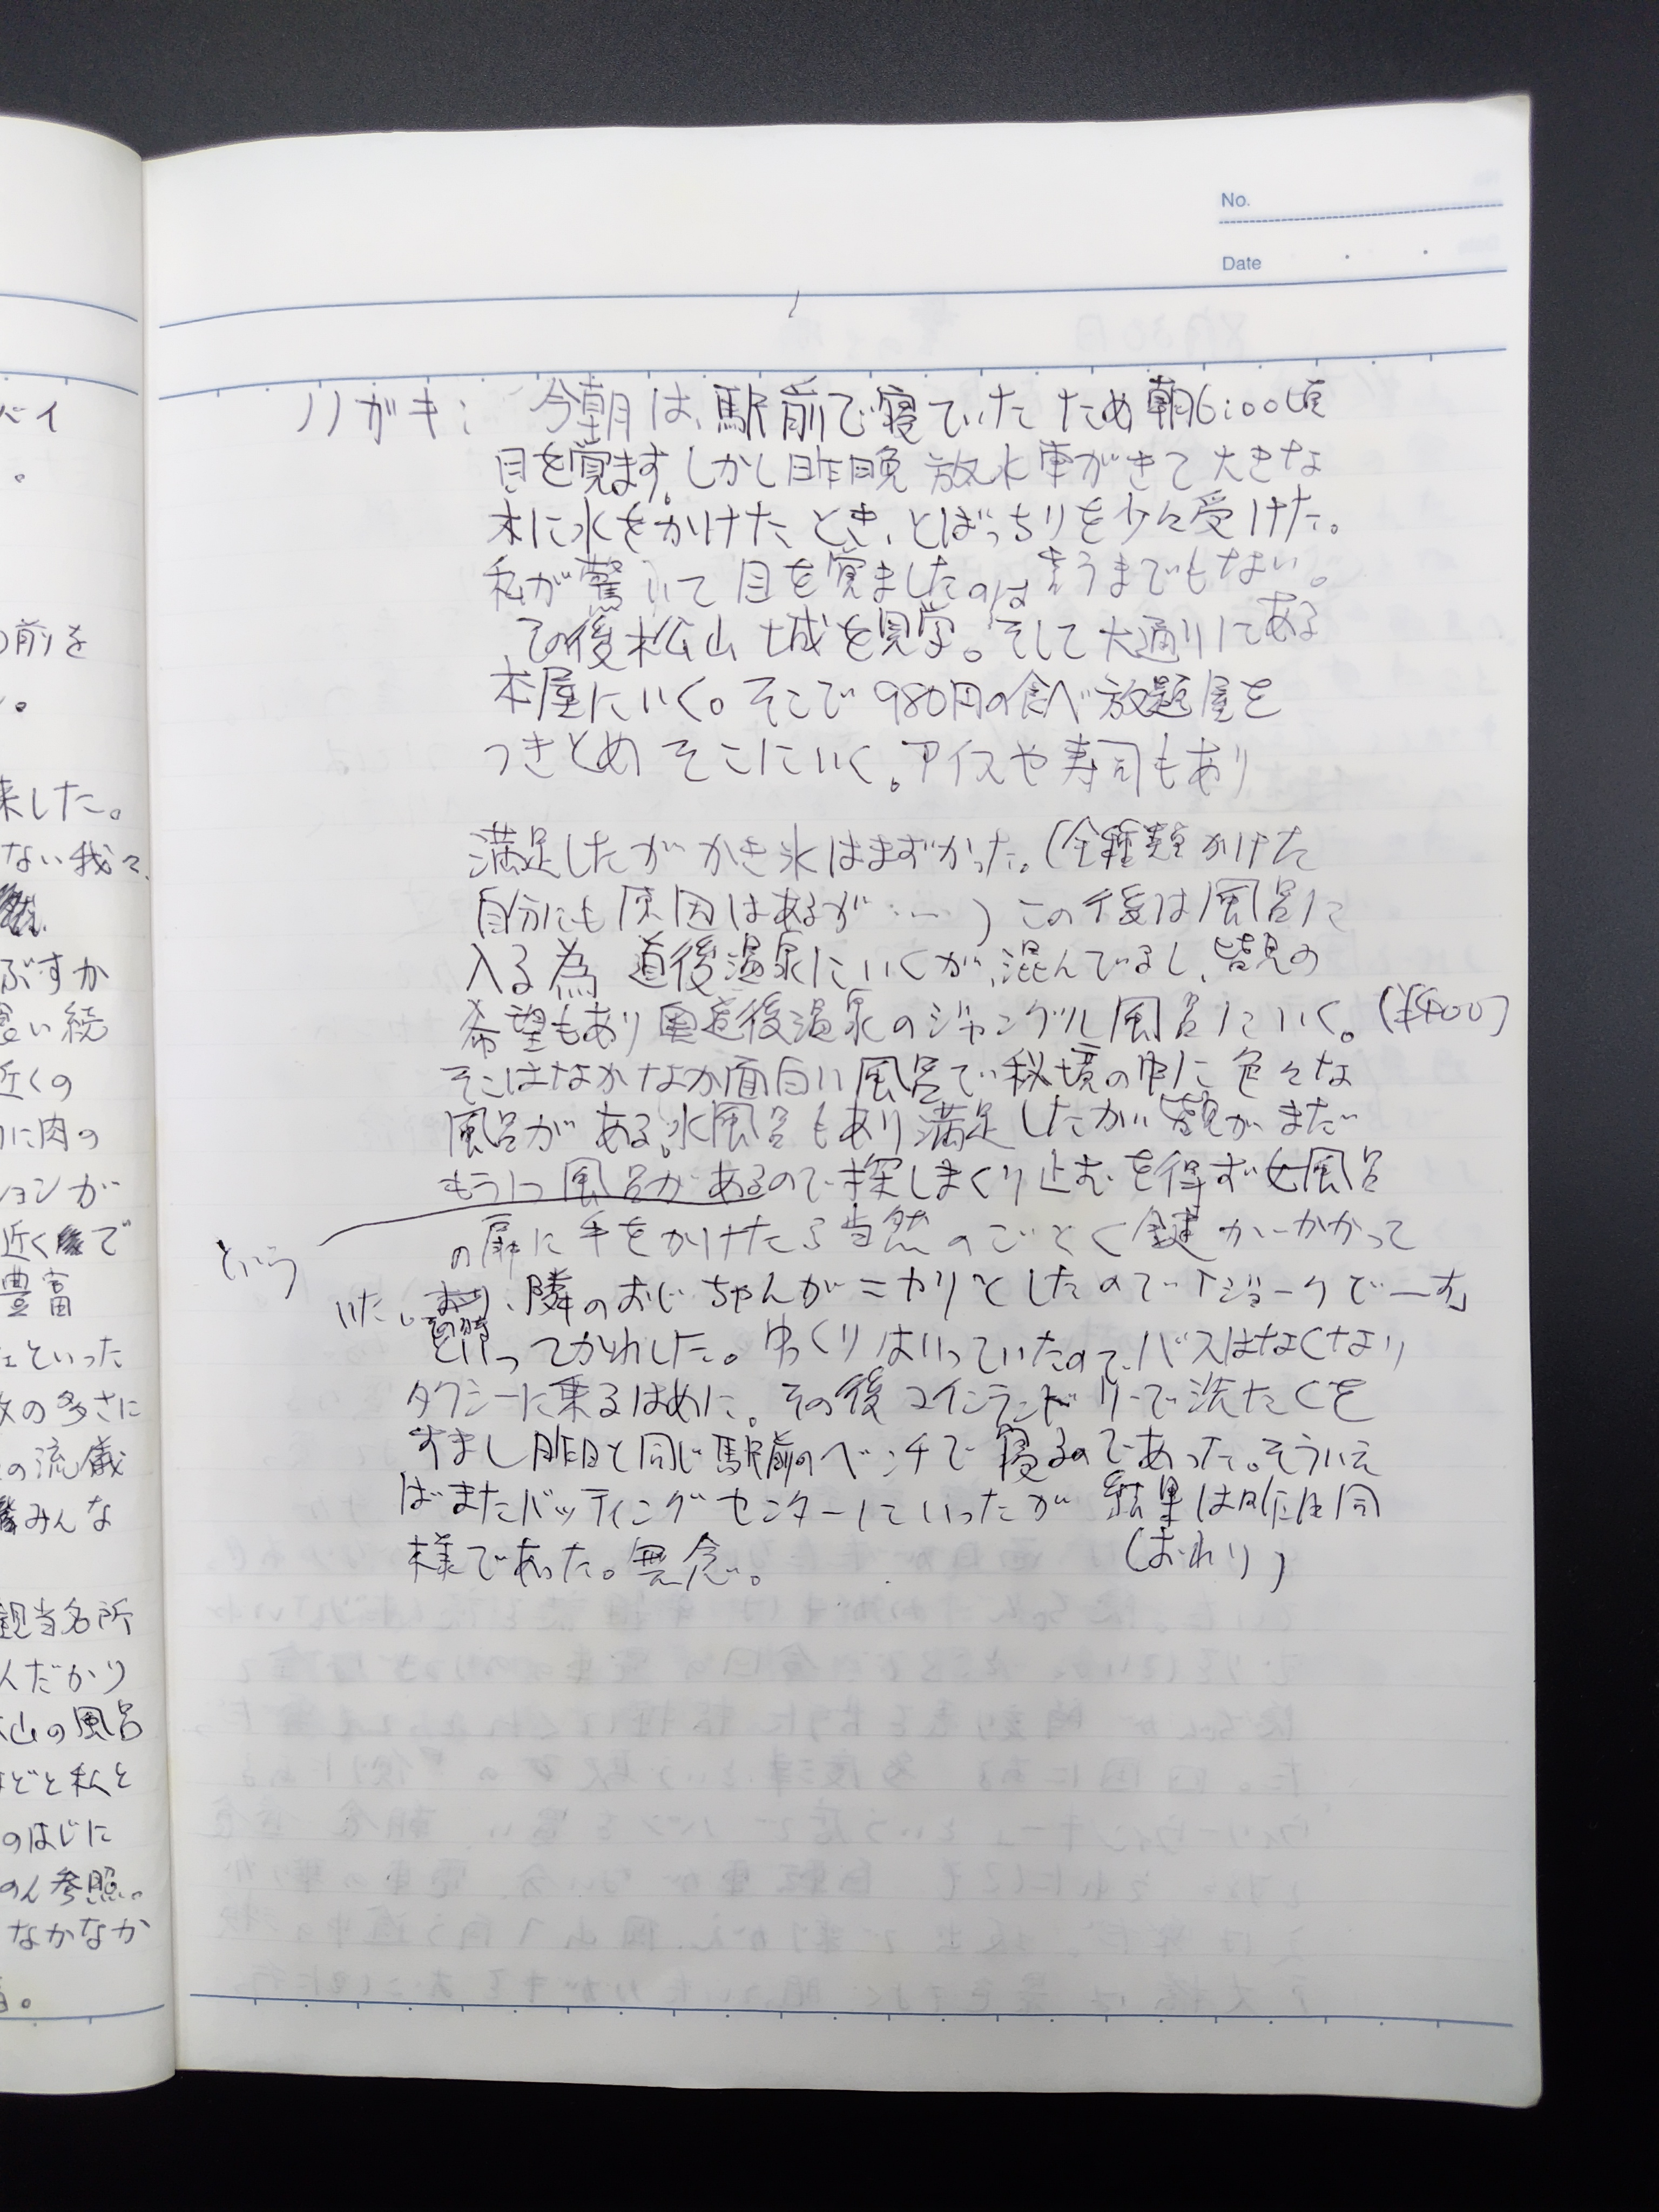 バイ
。
の前を
。
来した。
ない我々、
ぶすか
買い続
近くの
に肉の
ションが
近くで
豊富
といった
数の多さに
の流儀
みんな
観当名所
人だかり
山の風呂
などと私と
のはじに
参照。
なかなか
。
No.
Date
ハガキ: 今朝は、駅前で寝ていたため朝6:00頃
目を覚ます。しかし昨晩放水車がきて大きな
木に水をかけたとき、とばっちりを少々受けた。
私が驚いて目を覚ましたのは言うまでもない。
その後松山城を見学。そして大通りにある
本屋にいく。そこで980円の食べ放題屋を
つきとめそこにいく。アイスや寿司もあり
満足したがかき氷はまずかった。(全種類かけた
自分にも原因はあるが……)この後は風呂に
入る為道後温泉にいくが、混んでるし、皆の
希望もあり奥道後温泉のジャングル風呂にいく。(¥400)
そこはなかなか面白い風呂で秘境の中に色々な
風呂がある。水風呂もあり満足したが皆がまだ
もう1つ風呂があるので探しまくり止むを得ず女風呂
という
の扉に手をかけたら当然のごとく鍵がかかって
いた。隣のおじちゃんがニヤリとしたので「ジョークでーす」
といってわかれした。ゆっくりはいっていたので、バスはなくなり
タクシーに乗るはめに。その後コインランドリーで洗たくを
すまし昨日と同じ駅前のベンチで寝るのであった。そういえ
ばまたバッティングセンターにいったが結果は昨日同
様であった。無念。 (おわり)